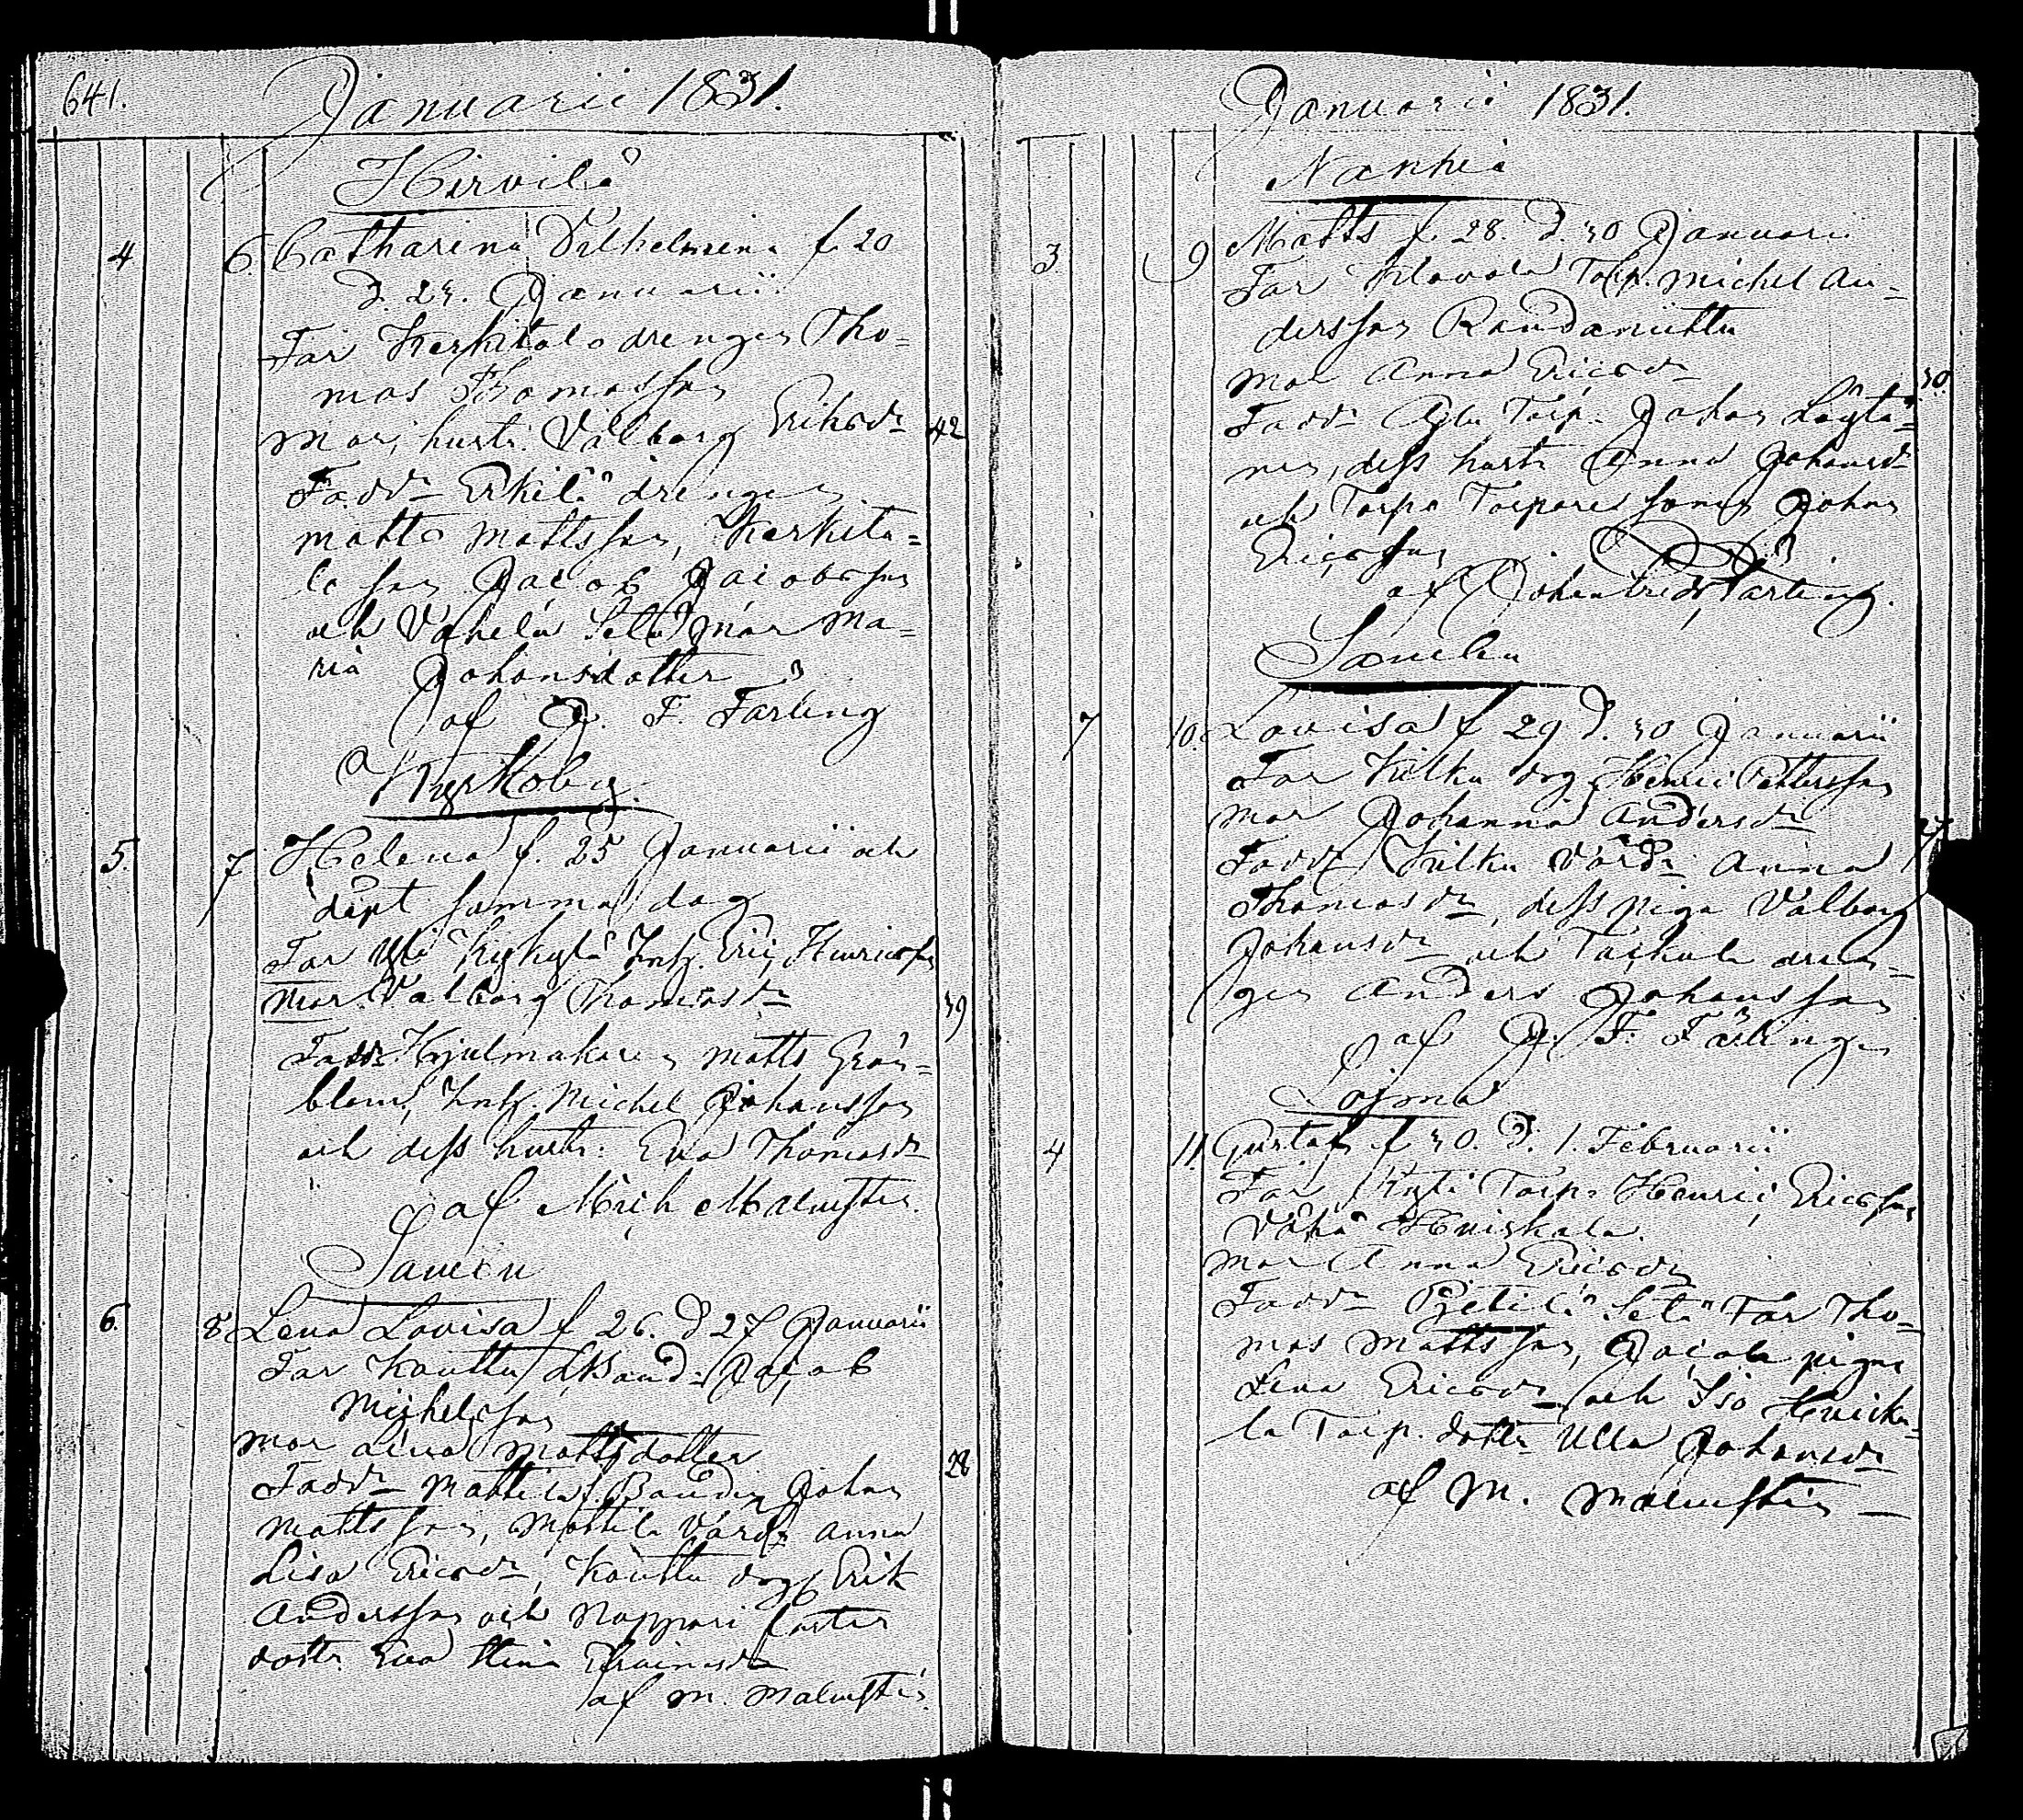 641.
Januarii 1831.
Hirvilä
4 6. Catharina Vilhelmina f. 20
d. 23. Januarii
Far Kerkitalo drengen Tho=
mas Thomasson
Mor, hustr. Valborg Eriksdr 42
Faddr Erkilä drengen
Matts Mattsson, Kerkita=
lo son Jacob Jacobsson
och Vähelä Mor Ma=
ria Johansdotter
af J. F. Färling
Kyrkoby
5. 7 Helena f. 25 Januarii och
döpt samma dag
Far Kykylä Inh. Eric Henricsson
Mor Valborg Thomasdr 39
Faddr Hjulmakaren Matts Grön=
blom, Inh. Michel Johansson
och dess hustr: Eva Thomasdr
af Mich Malmsten.
Samen
6. 8. Lena Lovisa f 26. d 27 Januarii
Far Kauttu Bond. Jacob
Michelsson
Mor Lena Mattsdotter 28
Faddr Mattila Bonden Johan
Mattsson, Mattila Värd. Anna
Lisa Ericsdr, Kauttu drg Erik
Andersson och Nappari
dottr Eva Stina Efraimsdr
af M. Malmsten.
Januarii 1831.
Nanhia
3 9 Matts f. 28. d. 30 Januari
Far Torp. Michel An=
dersson Raudaniittu
Mor Anna Ericsdr 30.
Faddr Torp. Johan Löytä=
nen, dess hustr Anna Johansdr
och Torpo Torpare sonen Johan
Ericsson
af Johan Fredr Färling.
Sämelu
7 10. Lovisa f 29 d. 30 Januarii
Far Kilku drg Henric Pettersson
Mor Johanna Andersdr 27
Faddr Kilku Värd. Anna
Thomasdr, dess piga Valborg
Johansdr och Taskula dren=
gen Anders Johansson
af J. F. Färling
Loima
4 11 Gustaf f 30. d. 1. Februarii
Far Kyti Torp. Henric Ericsson
Vähä Heiskala.
Mor Anna Ericsdr
Faddr Pietilä Far Tho=
mas Mattsson, pigan
Lena Ericsdr och Iso
la Torp. dottr Ulla Johansdr
af M. Malmsten